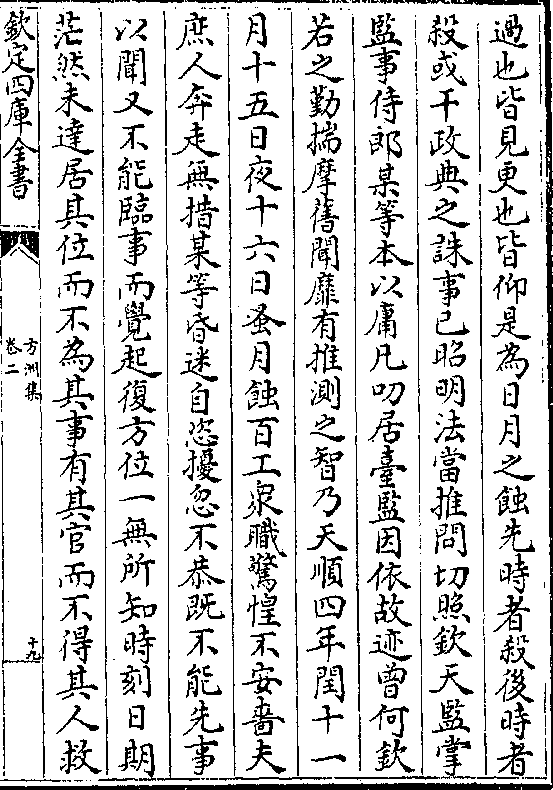 過也皆見更也皆仰是為日月之蝕先時者殺後時者
殺或干政典之誅事已昭明法當推問切照欽天監掌
監事侍郎某等本以庸凡叨居臺監因依故迹曾何欽
若之勤揣摩舊聞靡有推測之智乃天順四年閏十一
月十五日夜十六日蚤月蝕百工衆職驚惶不安嗇夫
庶人奔走無措某等昏迷自恣擾忽不恭既不能先事
以聞又不能臨事而覺起復方位一無所知時刻日期
茫然未達居其位而不為其事有其官而不得其人救
欽定四庫全書
方洲集
卷二
十九